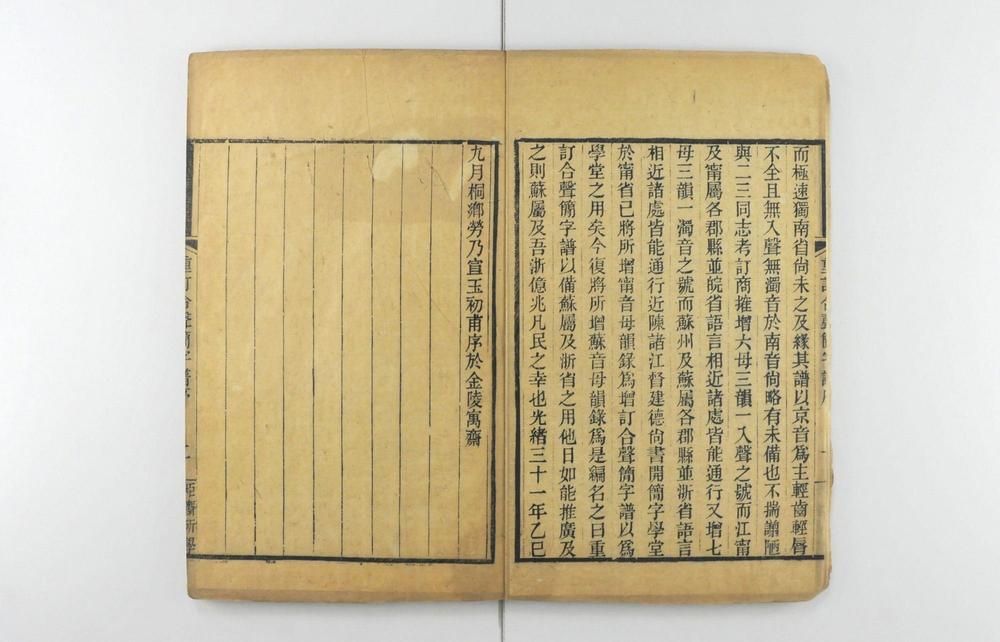 而極速獨南省尙未之及緣其譜以京音爲主輕齒輕脣
不全且無入聲無濁音於南音尙略有未備也不揣譾陋
與二三同志考訂商搉增六母三韻一入聲之號而江甯
及甯屬各郡縣並皖省語言相近諸處皆能通行又增七
母三韻一濁音之號而蘇州及蘇屬各郡縣並浙省語言
相近諸處皆能通行近陳諸江督建德尙書開簡字學堂
於甯省已將所增甯音母韻錄爲增訂合聲簡字譜以爲
學堂之用矣今復將所增蘇音母韻錄爲是編名之曰重
訂合聲簡字譜以備蘇屬及浙省之用他日如能推廣及
之則蘇屬及吾浙億兆凡民之幸也光緒三十一年乙巳
九月桐鄉勞乃宣玉初甫序於金陵寓齋